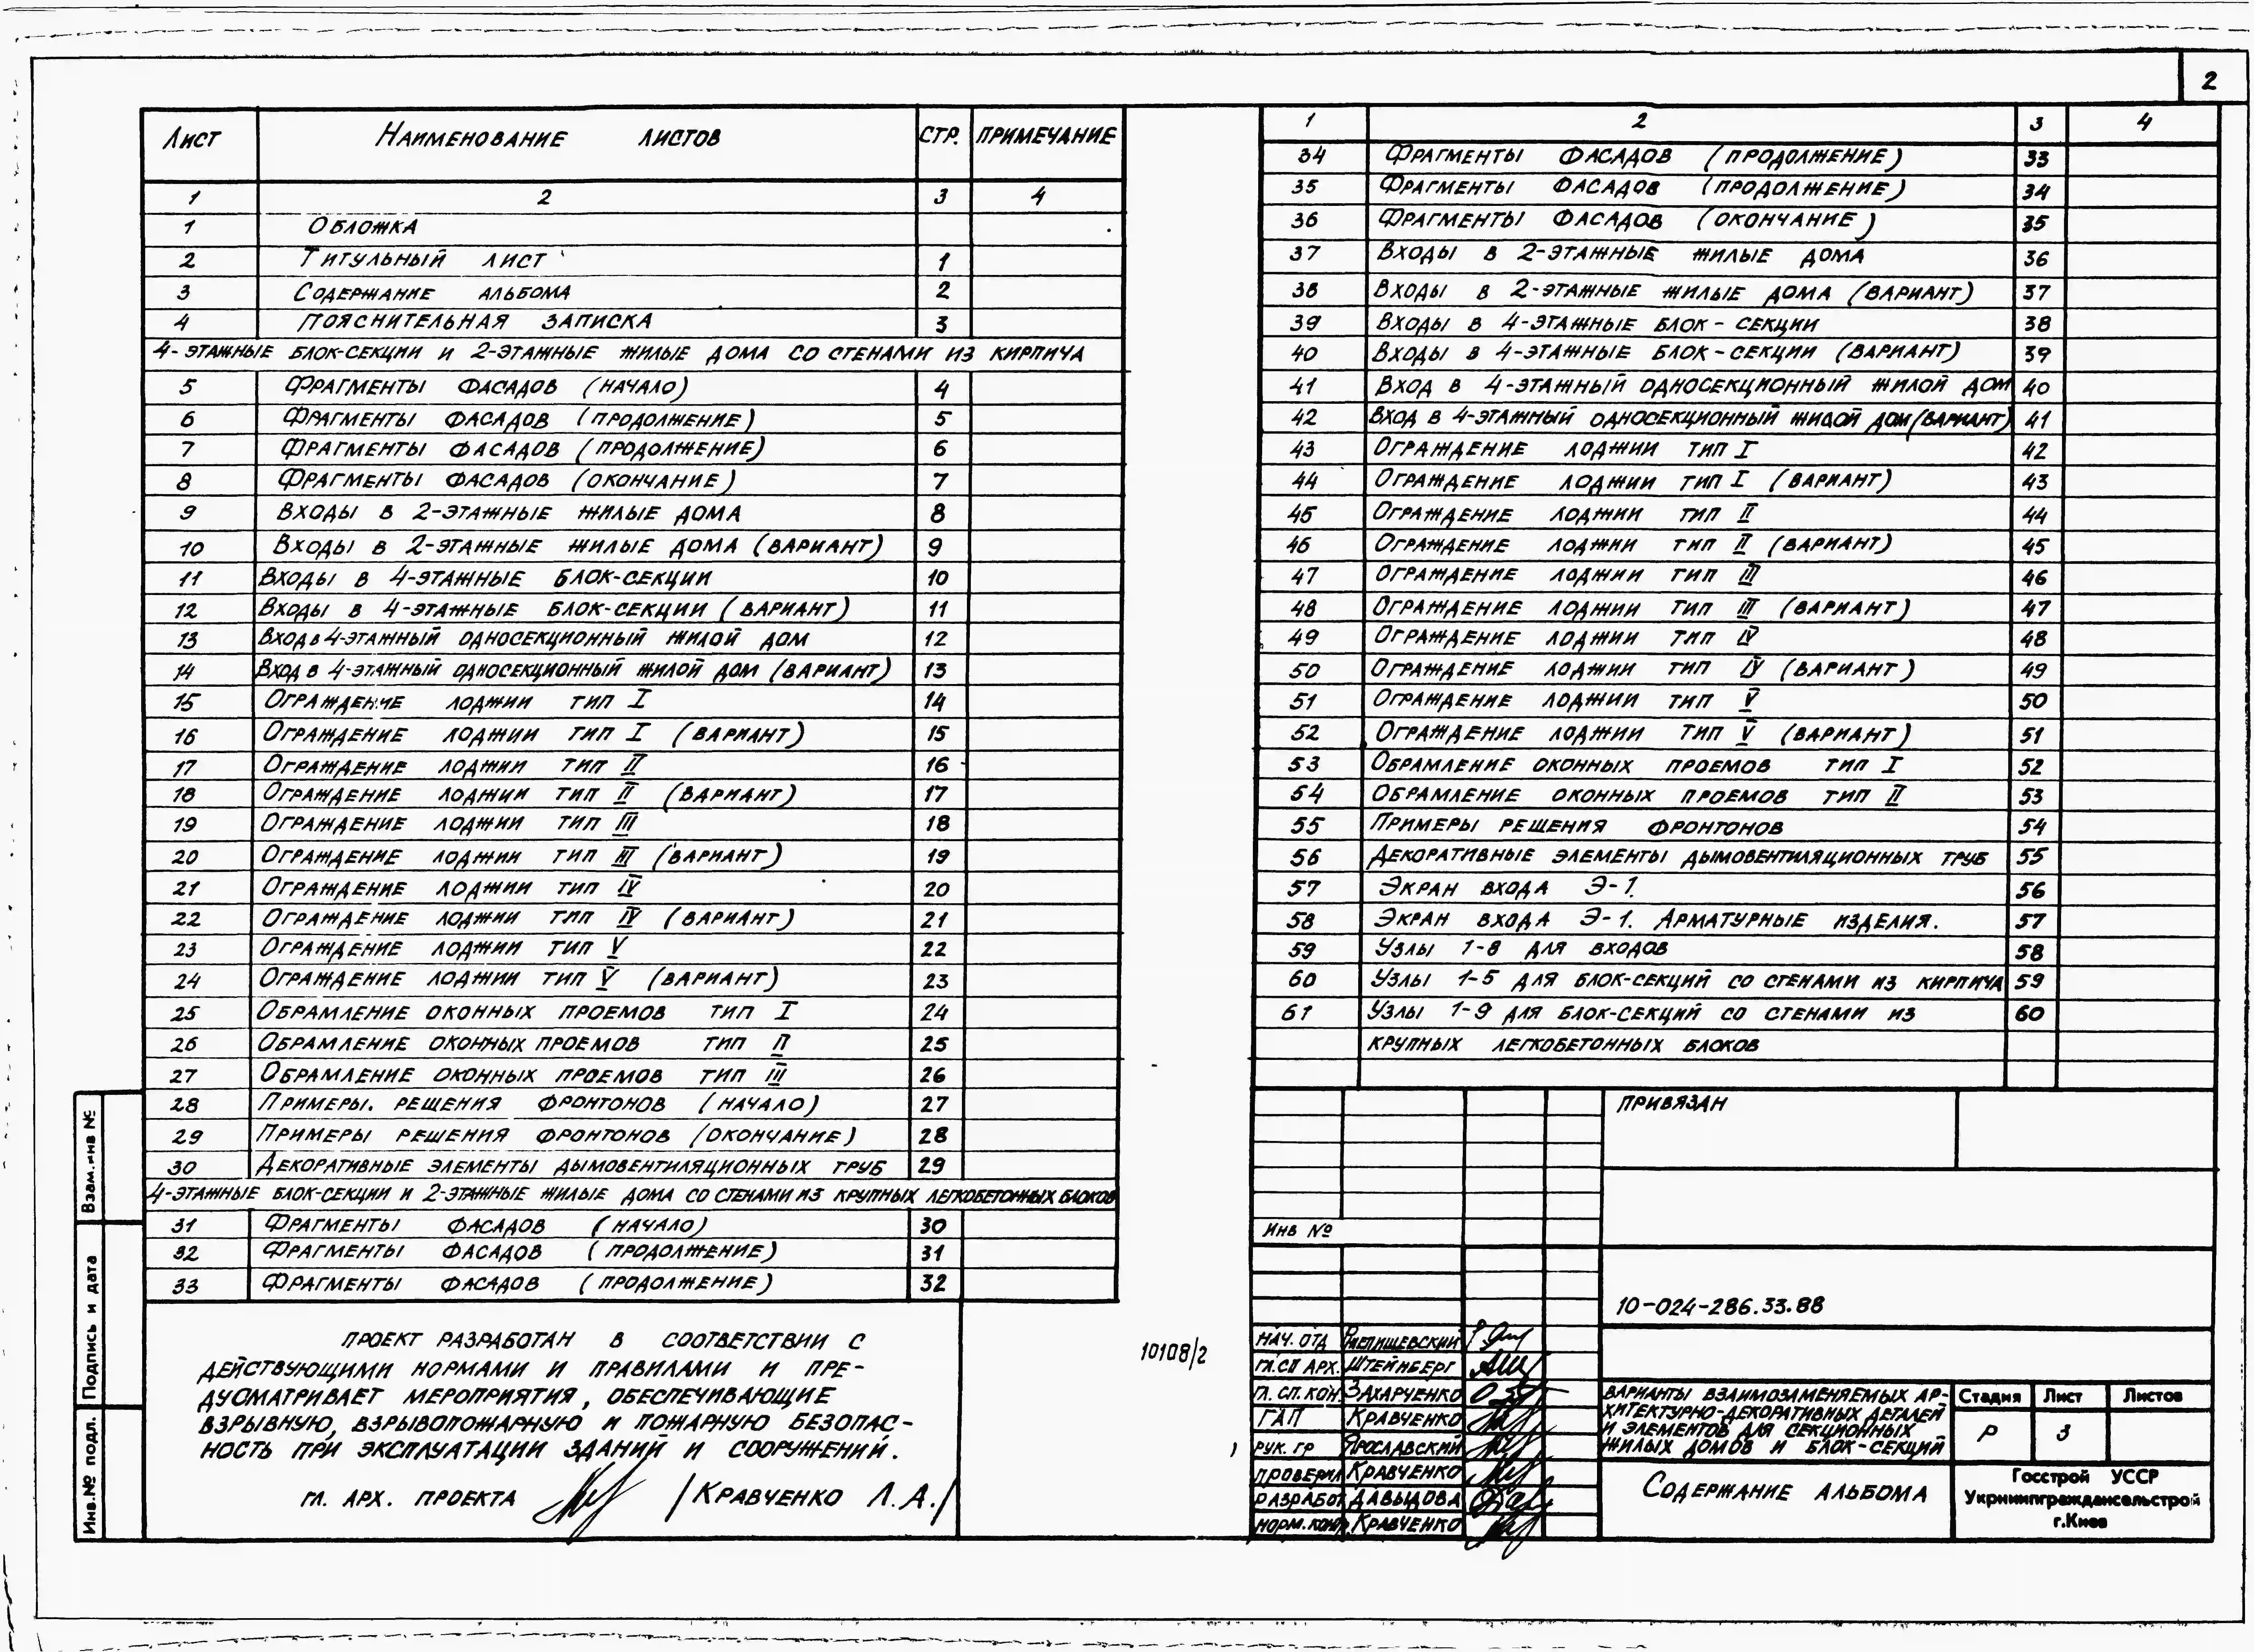 2
Лист Наименование листов стр. примечание
1 2 3 4
1 Обложка
2 Титульный лист 1
3 Содержание альбома 2
4 Пояснительная записка 3
4-этажные блок-секции и 2-этажные жилые дома со стенами из кирпича
5 Фрагменты фасадов (начало) 4
6 Фрагменты фасадов (продолжение) 5
7 Фрагменты фасадов (продолжение) 6
8 Фрагменты фасадов (окончание) 7
9 Входы в 2-этажные жилые дома 8
10 Входы в 2-этажные жилые дома (вариант) 9
11 Входы в 4-этажные блок-секции 10
12 Входы в 4-этажные блок-секции (вариант) 11
13 Вход в 4-этажный односекционный жилой дом 12
14 Вход в 4-этажный односекционный жилой дом (вариант) 13
15 Ограждение лоджии тип I 14
16 Ограждение лоджии тип I (вариант) 15
17 Ограждение лоджии тип II 16
18 Ограждение лоджии тип II (вариант) 17
19 Ограждение лоджии тип III 18
20 Ограждение лоджии тип III (вариант) 19
21 Ограждение лоджии тип IV 20
22 Ограждение лоджии тип IV (вариант) 21
23 Ограждение лоджии тип V 22
24 Ограждение лоджии тип V (вариант) 23
25 Обрамление оконных проемов тип I 24
26 Обрамление оконных проемов тип II 25
27 Обрамление оконных проемов тип III 26
28 Примеры. решения фронтонов (начало) 27
29 Примеры решения фронтонов (окончание) 28
30 Декоративные элементы дымовентиляционных труб 29
4-этажные блок-секции и 2-этажные жилые дома со стенами из крупных легкобетонных блоков
31 Фрагменты фасадов (начало) 30
32 Фрагменты фасадов (продолжение) 31
33 Фрагменты фасадов (продолжение) 32
Проект разработан в соответствии с
действующими нормами и правилами и пре-
дусматривает мероприятия, обеспечивающие
взрывную, взрывопожарную и пожарную безопас-
ность при эксплуатации зданий и сооружений.
гл. арх. проекта /Кравченко Л.А./
Взам.инв №
Подпись и дата
Инв.№ подл.
10108/2
1 2 3 4
34 Фрагменты фасадов (продолжение) 33
35 Фрагменты фасадов (продолжение) 34
36 Фрагменты фасадов (окончание) 35
37 Входы в 2-этажные жилые дома 36
38 Входы в 2-этажные жилые дома (вариант) 37
39 Входы в 4-этажные блок-секции 38
40 Входы в 4-этажные блок-секции (вариант) 39
41 Вход в 4-этажный односекционный жилой дом 40
42 Вход в 4-этажный односекционный жилой дом (вариант) 41
43 Ограждение лоджии тип I 42
44 Ограждение лоджии тип I (вариант) 43
45 Ограждение лоджии тип II 44
46 Ограждение лоджии тип II (вариант) 45
47 Ограждение лоджии тип III 46
48 Ограждение лоджии тип III (вариант) 47
49 Ограждение лоджии тип IV 48
50 Ограждение лоджии тип IV (вариант) 49
51 Ограждение лоджии тип V 50
52 Ограждение лоджии тип V (вариант) 51
53 Обрамление оконных проемов тип I 52
54 Обрамление оконных проемов тип II 53
55 Примеры решения фронтонов 54
56 Декоративные элементы дымовентиляционных труб 55
57 Экран входа Э-1. 56
58 Экран входа Э-1. Арматурные изделия. 57
59 Узлы 1-8 для входов 58
60 Узлы 1-5 для блок-секций со стенами из кирпича 59
61 Узлы 1-9 для блок-секций со стенами из 60
крупных легкобетонных блоков
Привязан
Инв №
10-024-286.33.88
Нач. отд
Гл.сп арх. Штейнберг
Гл. сп. кон. Захарченко
ГАП Кравченко
Рук. гр Ярославский
Проверил Кравченко
Разработ. Давыдова
Норм. конт. Кравченко
Варианты взаимозаменяемых ар-
хитектурно-декоративных деталей
и элементов для секционных
жилых домов и блок-секций
Стадия Лист Листов
Р 3
Содержание альбома
Госстрой УССР
Укрниипграждансельстрой
г.Киев